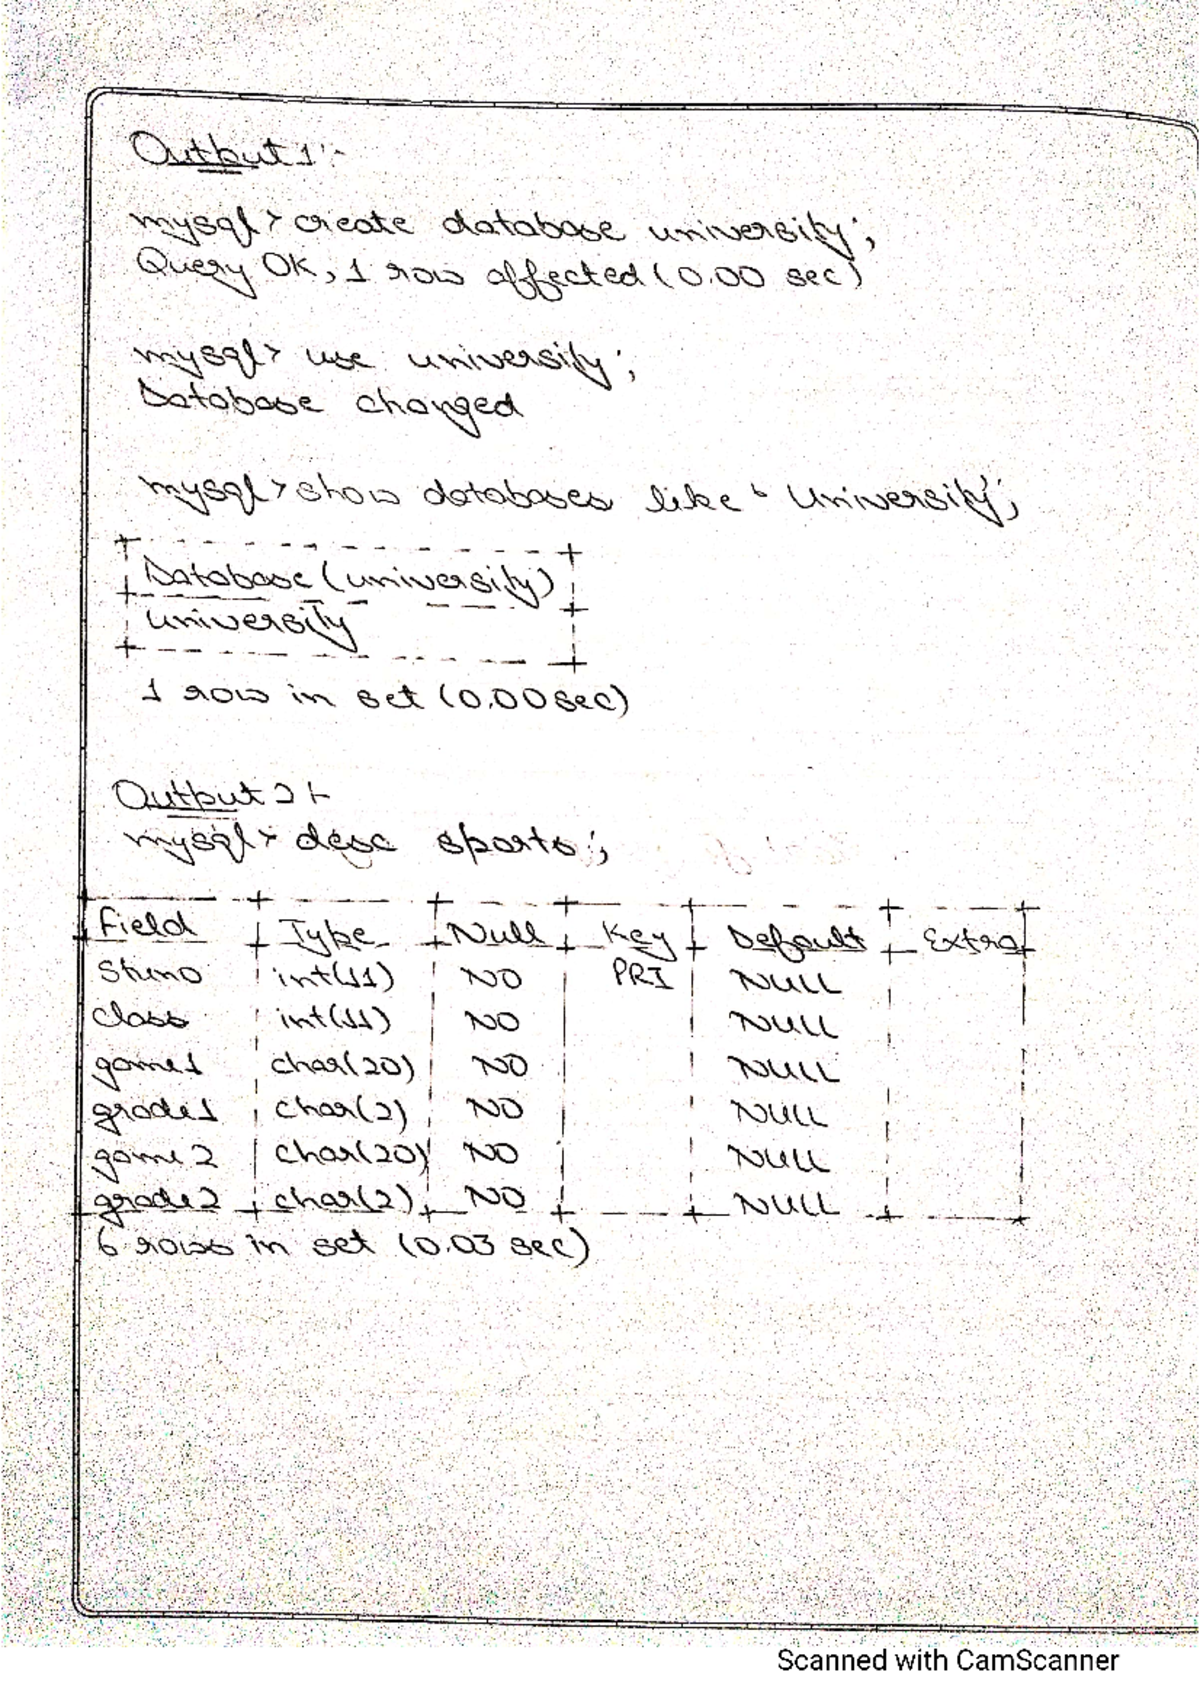 Output 1:-
mysql> create database university;
Query OK, 1 row affected (0.00 sec)
mysql> use university;
Database changed
mysql> show databases like 'University';
Database (university)
university
1 row in set (0.00 sec)
Output 2:-
mysql> desc sports;
Field Type Null Key Default Extra
Stuno int(11) NO PRI NULL
class int(11) NO NULL
game1 char(20) NO NULL
grade1 char(2) NO NULL
game2 char(20) NO NULL
grade2 char(2) NO NULL
6 rows in set (0.03 sec)
Scanned with CamScanner